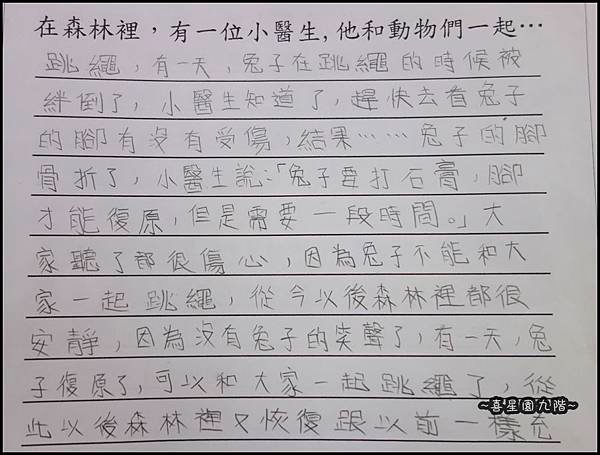 在森林裡，有一位小醫生,他和動物們一起…
跳繩，有一天，兔子在跳繩的時候被
絆倒了，小醫生知道了，趕快去看兔子
的腳有沒有受傷，結果……兔子的腳
骨折了，小醫生說:「兔子要打石膏，腳
才能復原，但是需要一段時間。」大
家聽了都很傷心，因為兔子不能和大
家一起跳繩，從今以後森林裡都很
安靜，因為沒有兔子的笑聲了，有一天，兔
子復原了，可以和大家一起跳繩了，從
此以後森林裡又恢復跟以前一樣充
~喜星園九階~